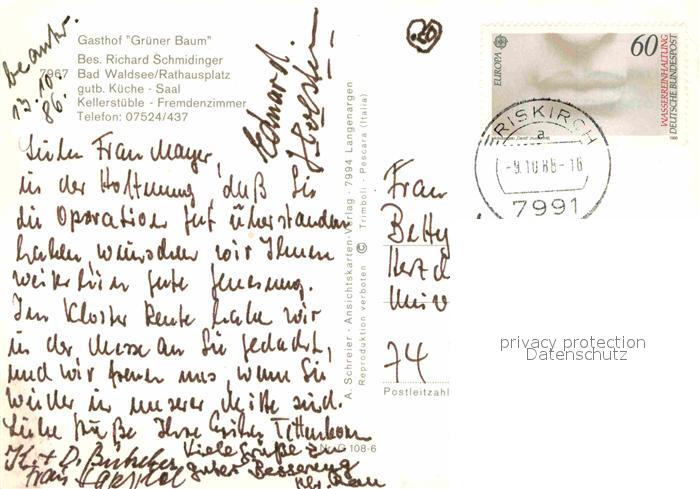 beantw.
13.10.
86.
Gasthof "Grüner Baum"
Bes. Richard Schmidinger
7967 Bad Waldsee/Rathausplatz
gutb. Küche - Saal
Kellerstüble - Fremdenzimmer
Telefon: 07524/437
Lieben Frau Mayer,
in der Hoffnung, daß Sie
die Operation gut überstanden
haben, wünschen wir Ihnen
weiterhin gute Genesung.
Im Kloster Reute habe wir
in der Messe an Sie gedacht,
und wir freuen uns, wenn Sie
wieder in unserer Mitte sind.
Liebe Grüße Ihre
Viele Grüße und
gute Besserung
Eduard
A. Schreier - Ansichtskarten-Verlag - 7994 Langenargen
Reproduktion verboten © Trimboli - Pescara (Italia)
Nr. G 108-6
EUROPA
60
WASSERREINHALTUNG
DEUTSCHE BUNDESPOST
ERISKIRCH
a
-9.10.86-16
7991
Frau
Betty
74
Postleitzahl
privacy protection
Datenschutz